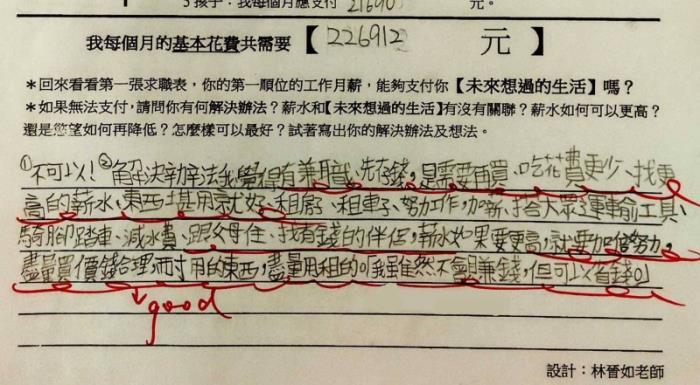 5孩子：我每個月應支付 21690 元。
我每個月的基本花費共需要【226912 元】
＊回來看看第一張求職表，你的第一順位的工作月薪，能夠支付你【未來想過的生活】嗎？
＊如果無法支付，請問你有何解決辦法？薪水和【未來想過的生活】有沒有關聯？薪水如何可以更高？
還是慾望如何再降低？怎麼樣可以最好？試著寫出你的解決辦法及想法。
①不可以！②解決辦法我覺得有兼職、先存錢，是需要再買、吃花費更少、找更
高的薪水、東西堪用就好、租房子、租車子、努力工作，加薪、搭大眾運輸工具、
騎腳踏車、減水費、跟父母住、找有錢的伴侶，薪水如果要更高，就要加倍努力，
盡量買價錢合理，耐用的東西，盡量用租的。「我雖然不會賺錢，但可以省錢。」
good
設計：林晉如老師